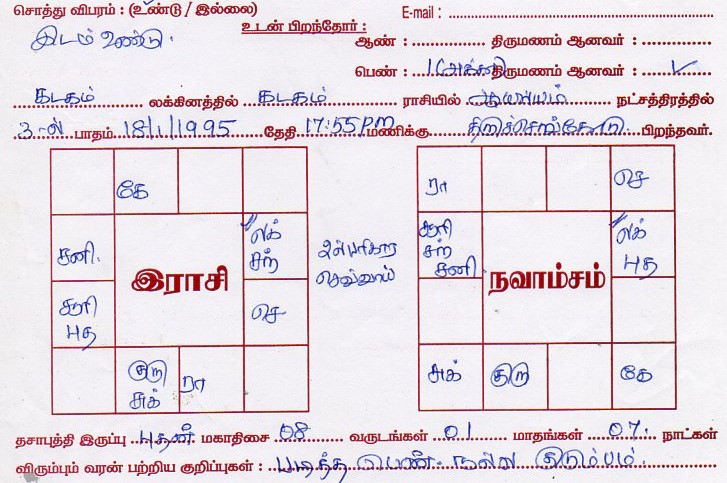 சொத்து விபரம் : (உண்டு / இல்லை)
E-mail :
இடம் உண்டு.
உடன் பிறந்தோர் :
ஆண் : திருமணம் ஆனவர் :
பெண் : 1 (அக்கா) திருமணம் ஆனவர் : ✓
கடகம் லக்கினத்தில் கடகம் ராசியில் ஆயில்யம் நட்சத்திரத்தில்
3-ல் பாதம் 18/1/1995 தேதி 17:55 PM மணிக்கு திருச்செங்கோடு பிறந்தவர்.
கே
சனி.
ல/க்
சந்
சூரி
புத
செ
குரு
சுக்
ரா
இராசி
பரிகார
செவ்வாய்
ரா
செ
சூரி
சந்
சனி
ல/க்
புத
சுக்
குரு
கே
நவாம்சம்
தசாபுத்தி இருப்பு புதன் மகாதிசை 08 வருடங்கள் 01 மாதங்கள் 07 நாட்கள்
விரும்பும் வரன் பற்றிய குறிப்புகள் : படித்த பெண். நல்ல குடும்பம்.